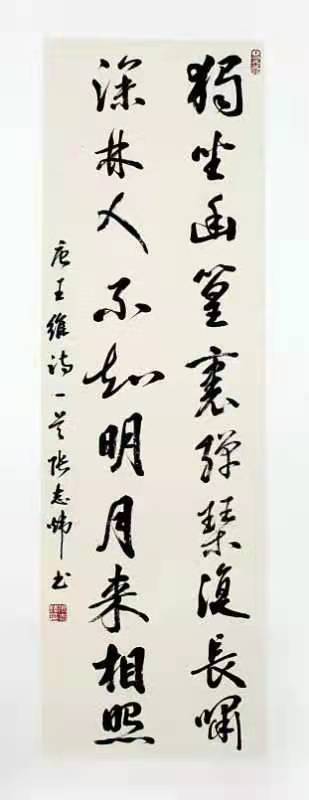 獨坐幽篁裏彈琴復長嘯
深林人不知明月来相照
唐王維诗一首张志炜书